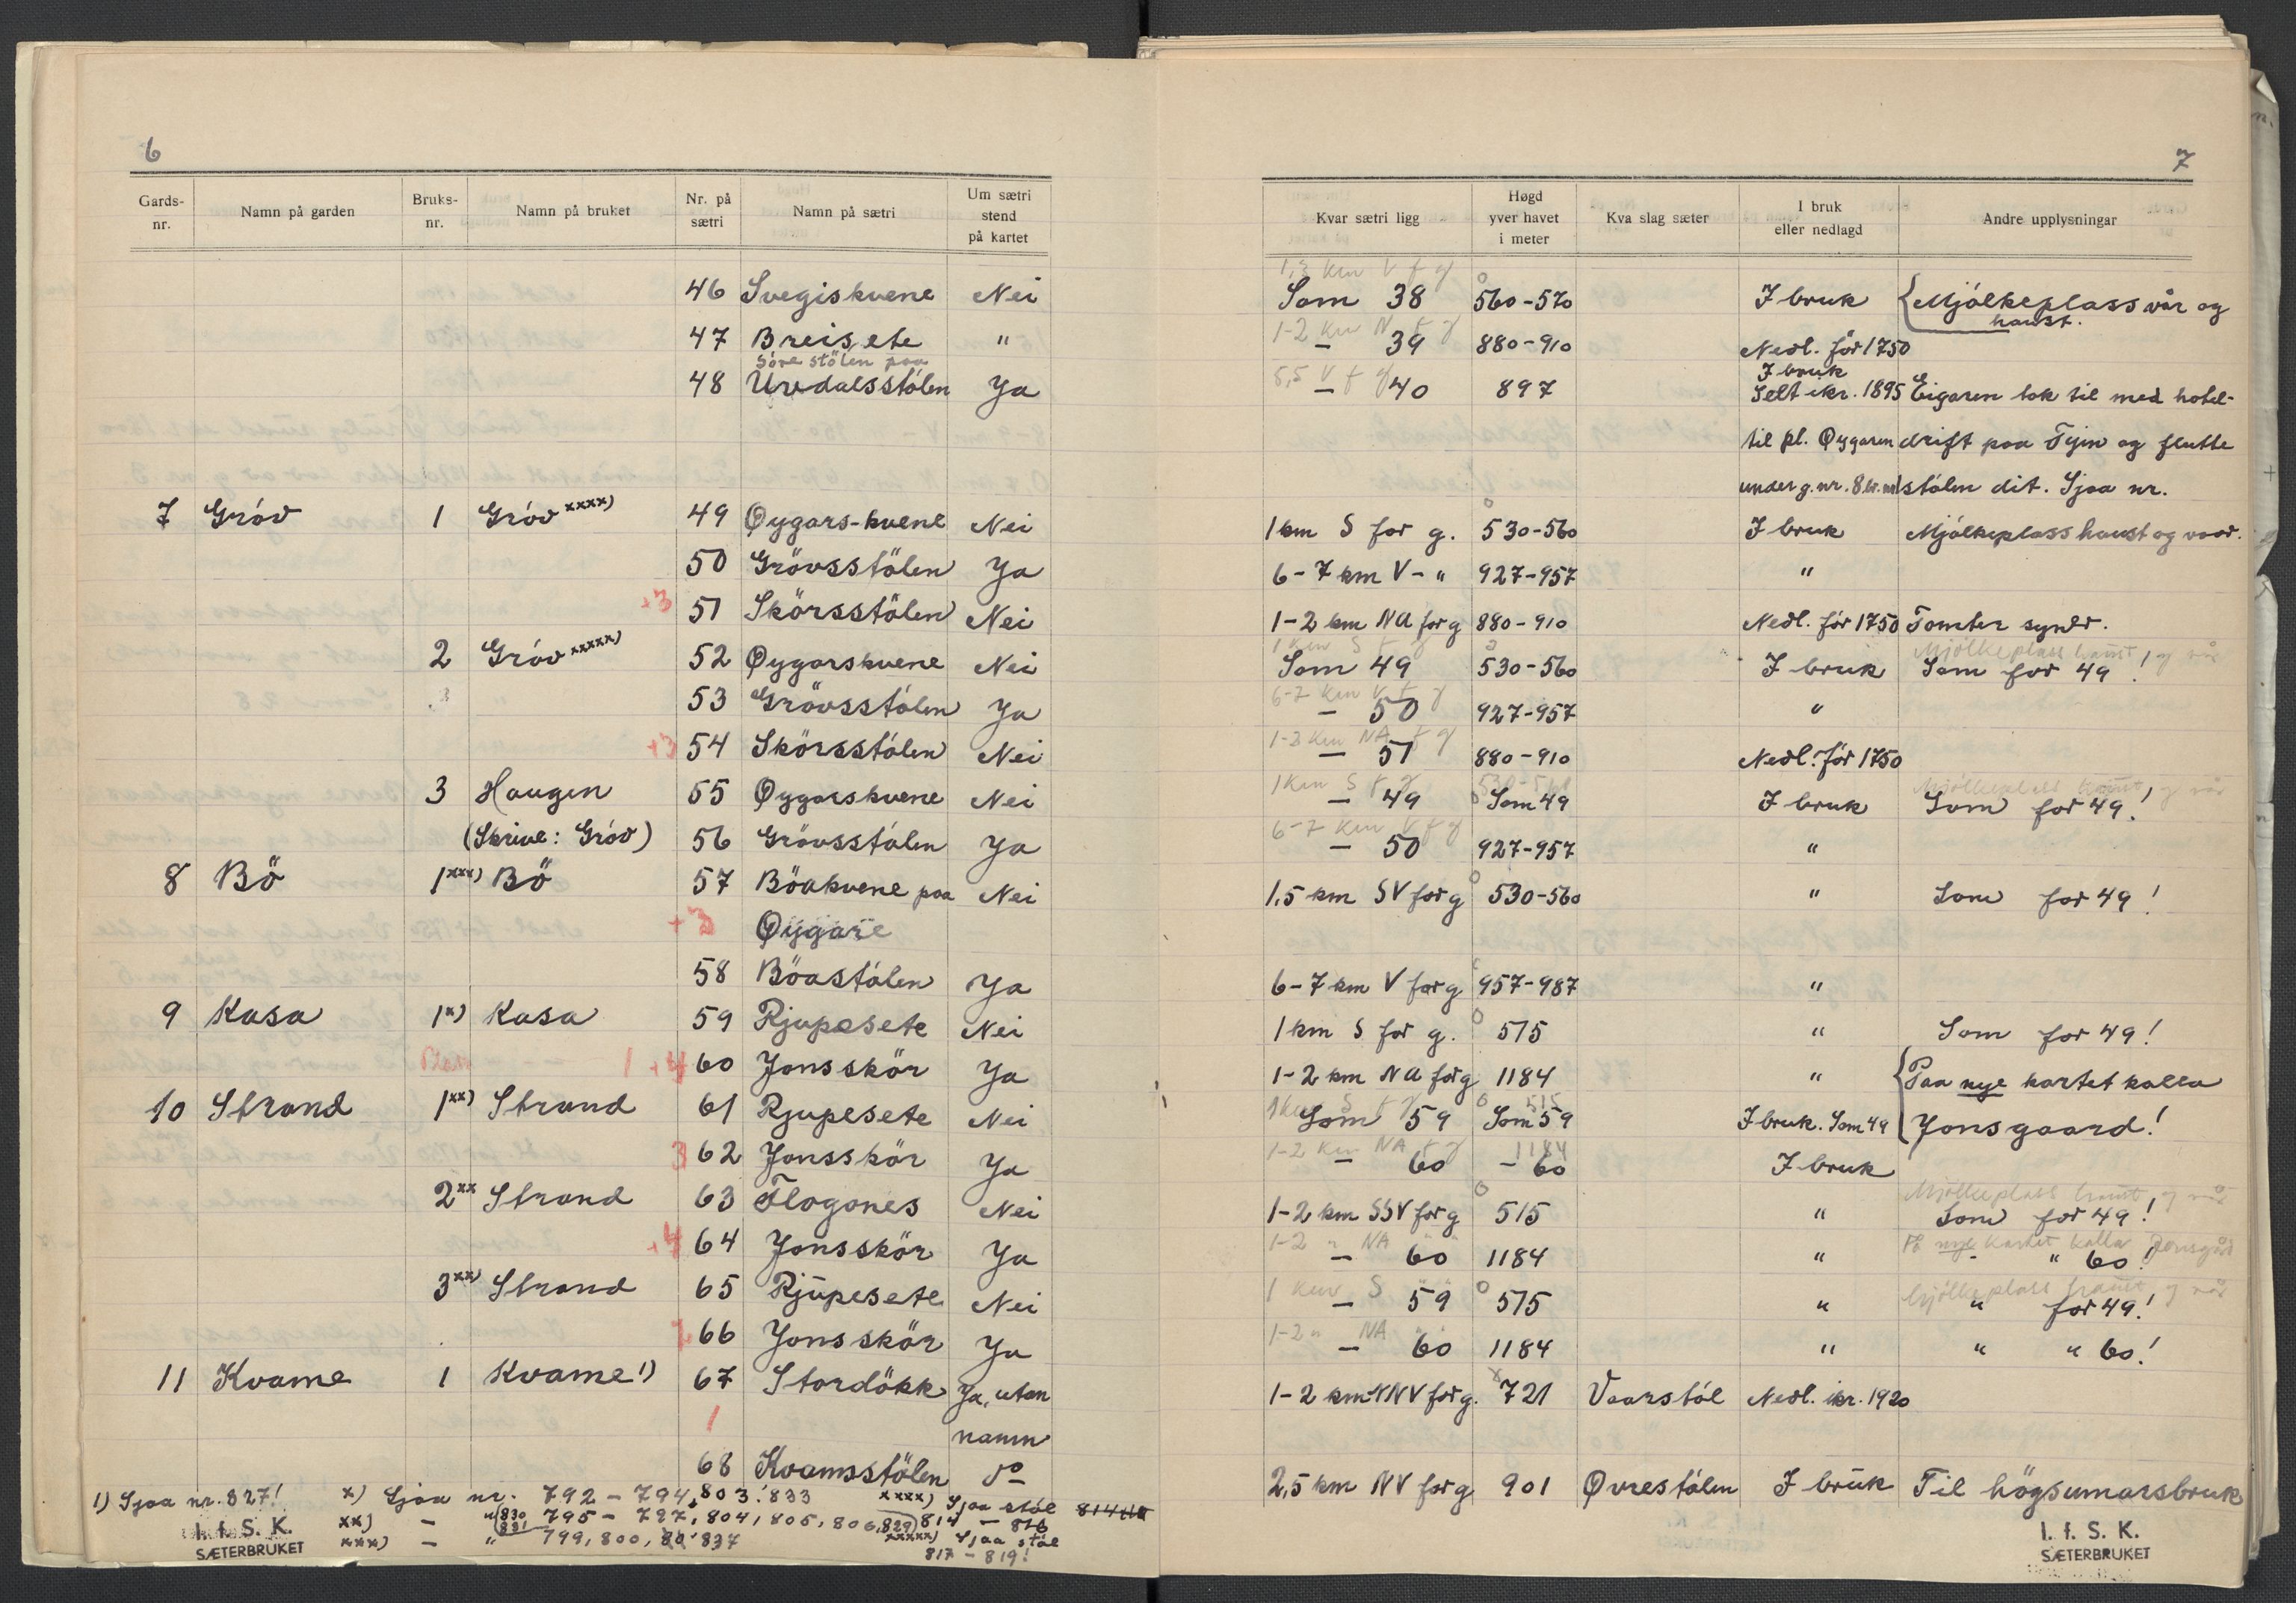 6
Gards-nr. Namn på garden Bruks-nr. Namn på bruket Nr. på sætri Namn på sætri Um sætri stend på kartet
46 Svegiskvene Nei
47 Breisete "
Söre stölen paa
48 Uredalsstölen Ja
7 Gröv 1 Gröv xxxx) 49 Øygars-kvene Nei
50 Grövsstölen Ja
+3 51 Skörsstölen Nei
2 Gröv xxxxx) 52 Øygarskvene Nei
53 Grövsstölen Ja
+3 54 Skörsstölen Nei
3 Haugen 55 Øygarskvene Nei
(Skrive: Gröv) 56 Grövsstölen Ja
8 Bö 1 xxx) Bö 57 Böakvene paa Nei
+3 Øygare
58 Böastölen Ja
9 Kasa 1 x) Kasa 59 Rjupesete Nei
1 +4 60 Jonsskör Ja
10 Strand 1 xx) Strand 61 Rjupesete Nei
3 62 Jonsskör Ja
2 xx Strand 63 Flogones Nei
+4 64 Jonsskör Ja
3 xx) Strand 65 Rjupesete Nei
66 Jonsskör Ja
11 Kvame 1 Kvame 1) 67 Stordökk Ja, utan
1 namn
68 Kvamsstölen do
1) Sjaa nr. 827! x) Sjaa nr. 792 - 794, 803! 833 xxxx) Sjaa stöl 814
xx) - " (830 831 795 - 797, 804, 805, 806, 829) 814 - 816
xxx) - " 799, 800, 837 xxxxx) Sjaa stöl
817 - 819!
I. f. S. K.
SÆTERBRUKET
7
Kvar sætri ligg Høgd yver havet i meter Kva slag sæter I bruk eller nedlagd Andre upplysningar
1,3 km V f g
Som 38 560-570 I bruk Mjölkeplass vår og
haust.
1-2 km N f g
- 39 880-910 Nedl. för 1750
I bruk
5,5 V f g
- 40 897 Selt ikr. 1895 Eigaren tok til med hotel-
til pl. Øygaren drift paa Tyin og flutte
under g.nr. 8 br. nr 1 stölen dit. Sjaa nr.
1 km S for g. 530-560 I bruk Mjölkeplass haust og vaar.
6-7 km V - " 927-957 "
1-2 km NA for g 880-910 Nedl. för 1750 Tomter synlr.
1 km S f g Mjölkeplass haust og vår
Som 49 530-560 I bruk Som for 49!
6-7 km V f g
- 50 927-957 "
1-2 km NA f g
- 51 880-910 Nedl. för 1750
1 km S f g 530-560 Mjölkeplass haust, og vår
- 49 Som 49 I bruk Som for 49!
6-7 km V f g
- 50 927-957 "
1,5 km SV for g 530-560 " Som for 49!
6-7 km V for g 957-987 "
1 km S for g. 515 " Som for 49!
1-2 km NA for g 1184 " Paa nye kartet kalla
1 km S f g 515
Som 59 Som 59 I bruk. Som 49 Jonsgaard!
1-2 km NA f g 1184
- 60 - 60 I bruk
Mjölkeplass haust, og vår
1-2 km SSV for g 515 " Som for 49!
1-2 " NA På nye kartet kalla Jonsgård
- 60 1184 " - " 60!
1 km S Mjölkeplass haust og vår
- 59 515 " " for 49!
1-2 " NA
- 60 1184 " " " 60!
1-2 km NNV for g. 721 Vaarstöl Nedl. ikr. 1920
2,5 km NV for g 901 Øvrestölen I bruk Til högsumarsbruk
I. f. S. K.
SÆTERBRUKET